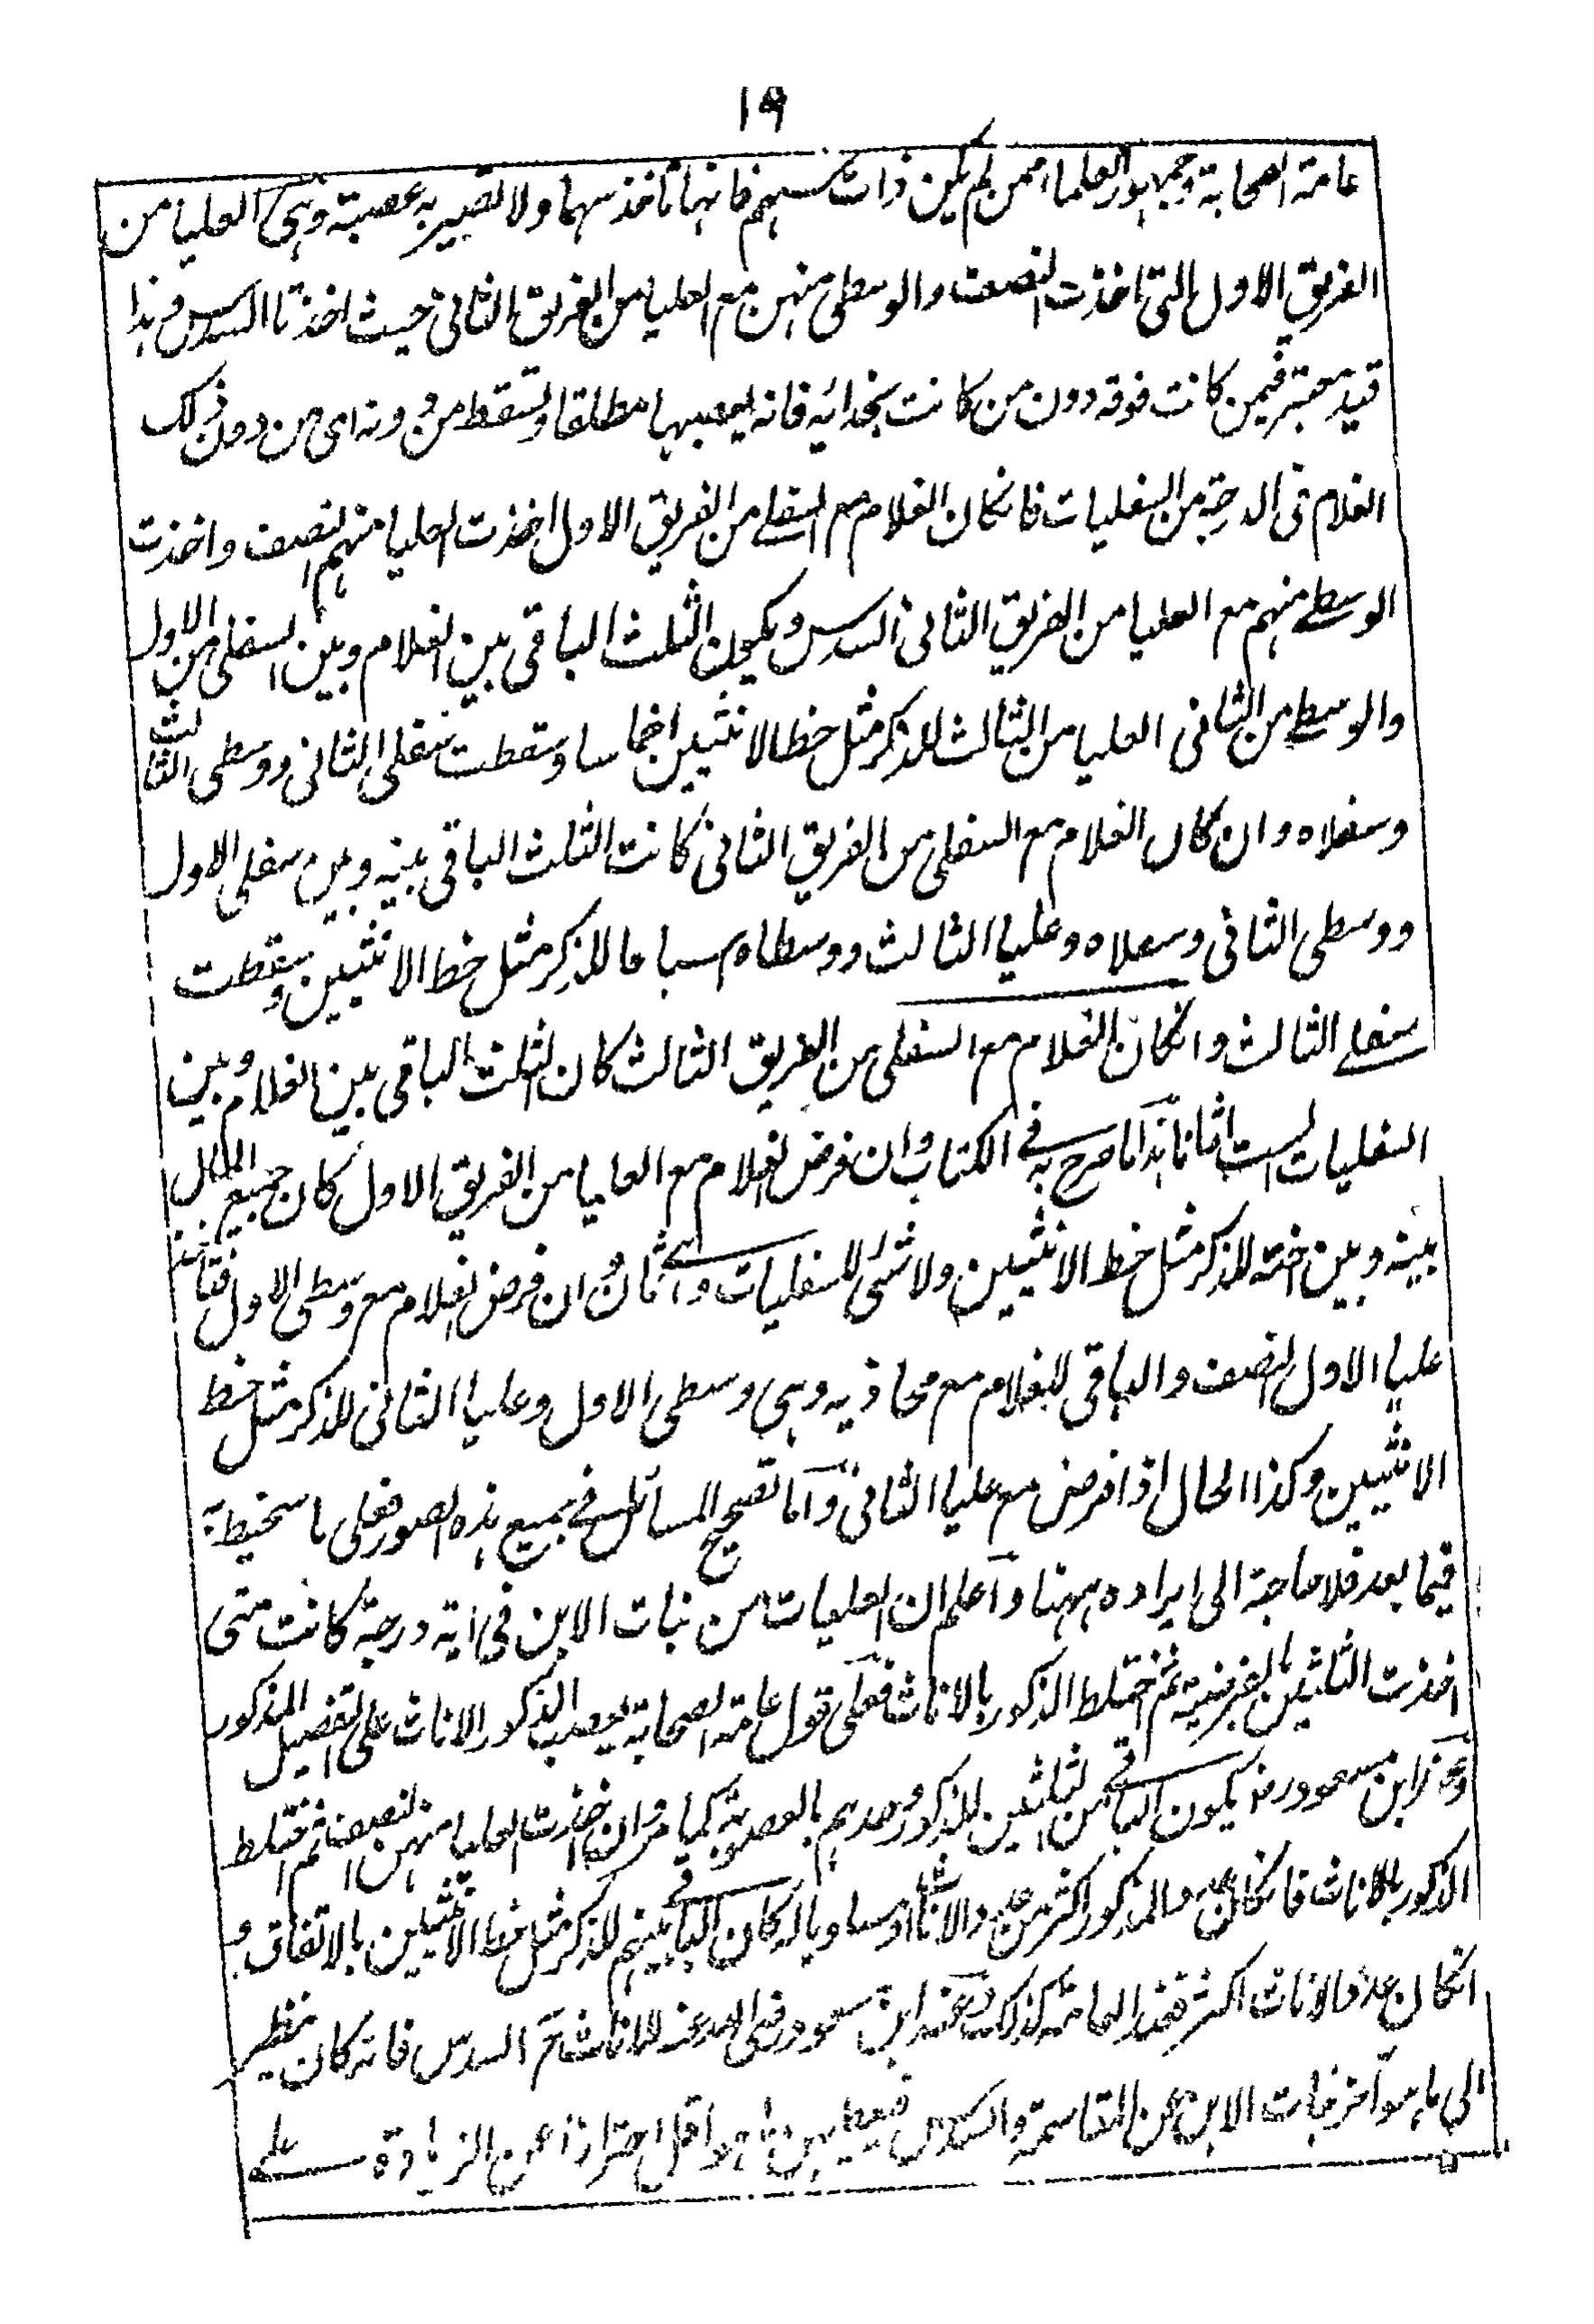 ١٩
عامة الصحابة وجمهور العلماء ممن لم يكن ذات سهم فانها تاخذ سهما ولا تصير به عصبة وهى العليا من
الفريق الاول التى اخذت النصف والوسطى منهن مع العليا من الفريق الثانى حيث اخذتا السدس وهذا
قيد معتبر فيمن كانت فوقه دون من كانت بحذائه فانه يعصبها مطلقا وتسقط من دونه اى من دون ذلك
الغلام فى الدرجة من السفليات فانكان الغلام مع السفلى من الفريق الاول اخذت العليا منهم النصف واخذت
الوسطى منهم مع العليا من الفريق الثانى السدس ويكون الثلث الباقى بين الغلام وبين السفلى من الاول
والوسطى من الثانى العليا من الثالث للذكر مثل حظ الانثيين اخماسا وسقطت سفلى الثانى ووسطى الثالث
وسفلاه وان كان الغلام مع السفلى من الفريق الثانى كانت الثلث الباقى بينه وبين سفلى الاول
ووسطى الثانى وسفلاه وعليا الثالث ووسطاه اسباعا للذكر مثل حظ الانثيين وسقطت
سفلى الثالث وانكان الغلام مع السفلى من الفريق الثالث كان الثلث الباقى بين الغلام وبين
السفليات الست اثمانا هذا ما صرح به فى الكتاب وان فرض الغلام مع العليا من الفريق الاول كان جميع المال
بينه وبين اخته للذكر مثل حظ الانثيين ولا شئ للسفليات وان فرض الغلام مع وسطى الاول فتاخذ
عليا الاول النصف والباقى للغلام مع محاذيه وهى وسطى الاول وعليا الثانى للذكر مثل حظ
الانثيين وكذا الحال اذا فرض مع عليا الثانى واما تصحيح المسائل فى جميع هذه الصور فعلى ما ستحيط به
فيما بعد فلا حاجة الى ايراده ههنا واعلم ان العليات من بنات الابن فى اية درجة كانت متى
اخذت الثلثين بالفرضية ثم اختلط الذكور بالاناث فعلى قول عامة الصحابة يعصب الذكور الاناث على التفصيل المذكور
وعند ابن مسعود رض يكون الباقى من الثلثين للذكور وحدهم بالعصوبة كما مر وان اخذت العليا منهن النصف ثم اختلط
الذكور بالاناث فانكان عدد الذكور اكثر من عدد الاناث او مساويا له كان الباقى بينهم للذكر مثل حظ الانثيين بالاتفاق و
انكان عدد الاناث اكثر فعند العامة كذلك وعند ابن مسعود رضى الله عنه للاناث السدس فانه كان ينظر
الى ما هو آخر بنات الابن من المقاسمة والسدس فيعطيهن ما هو اقل احترازا عن الزيادة على